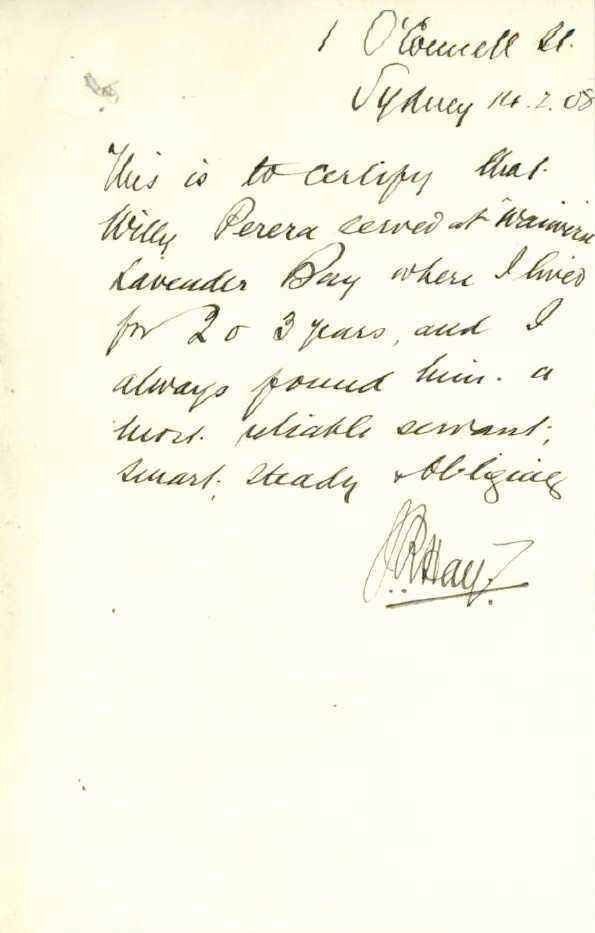 1 O'Connell St.
Sydney 14.2.08
This is to certify that
Willy Perera served at
Lavender Bay where I lived
for 2 o 3 years, and I
always found him a
most reliable servant,
smart, steady & obliging
J R Hay.